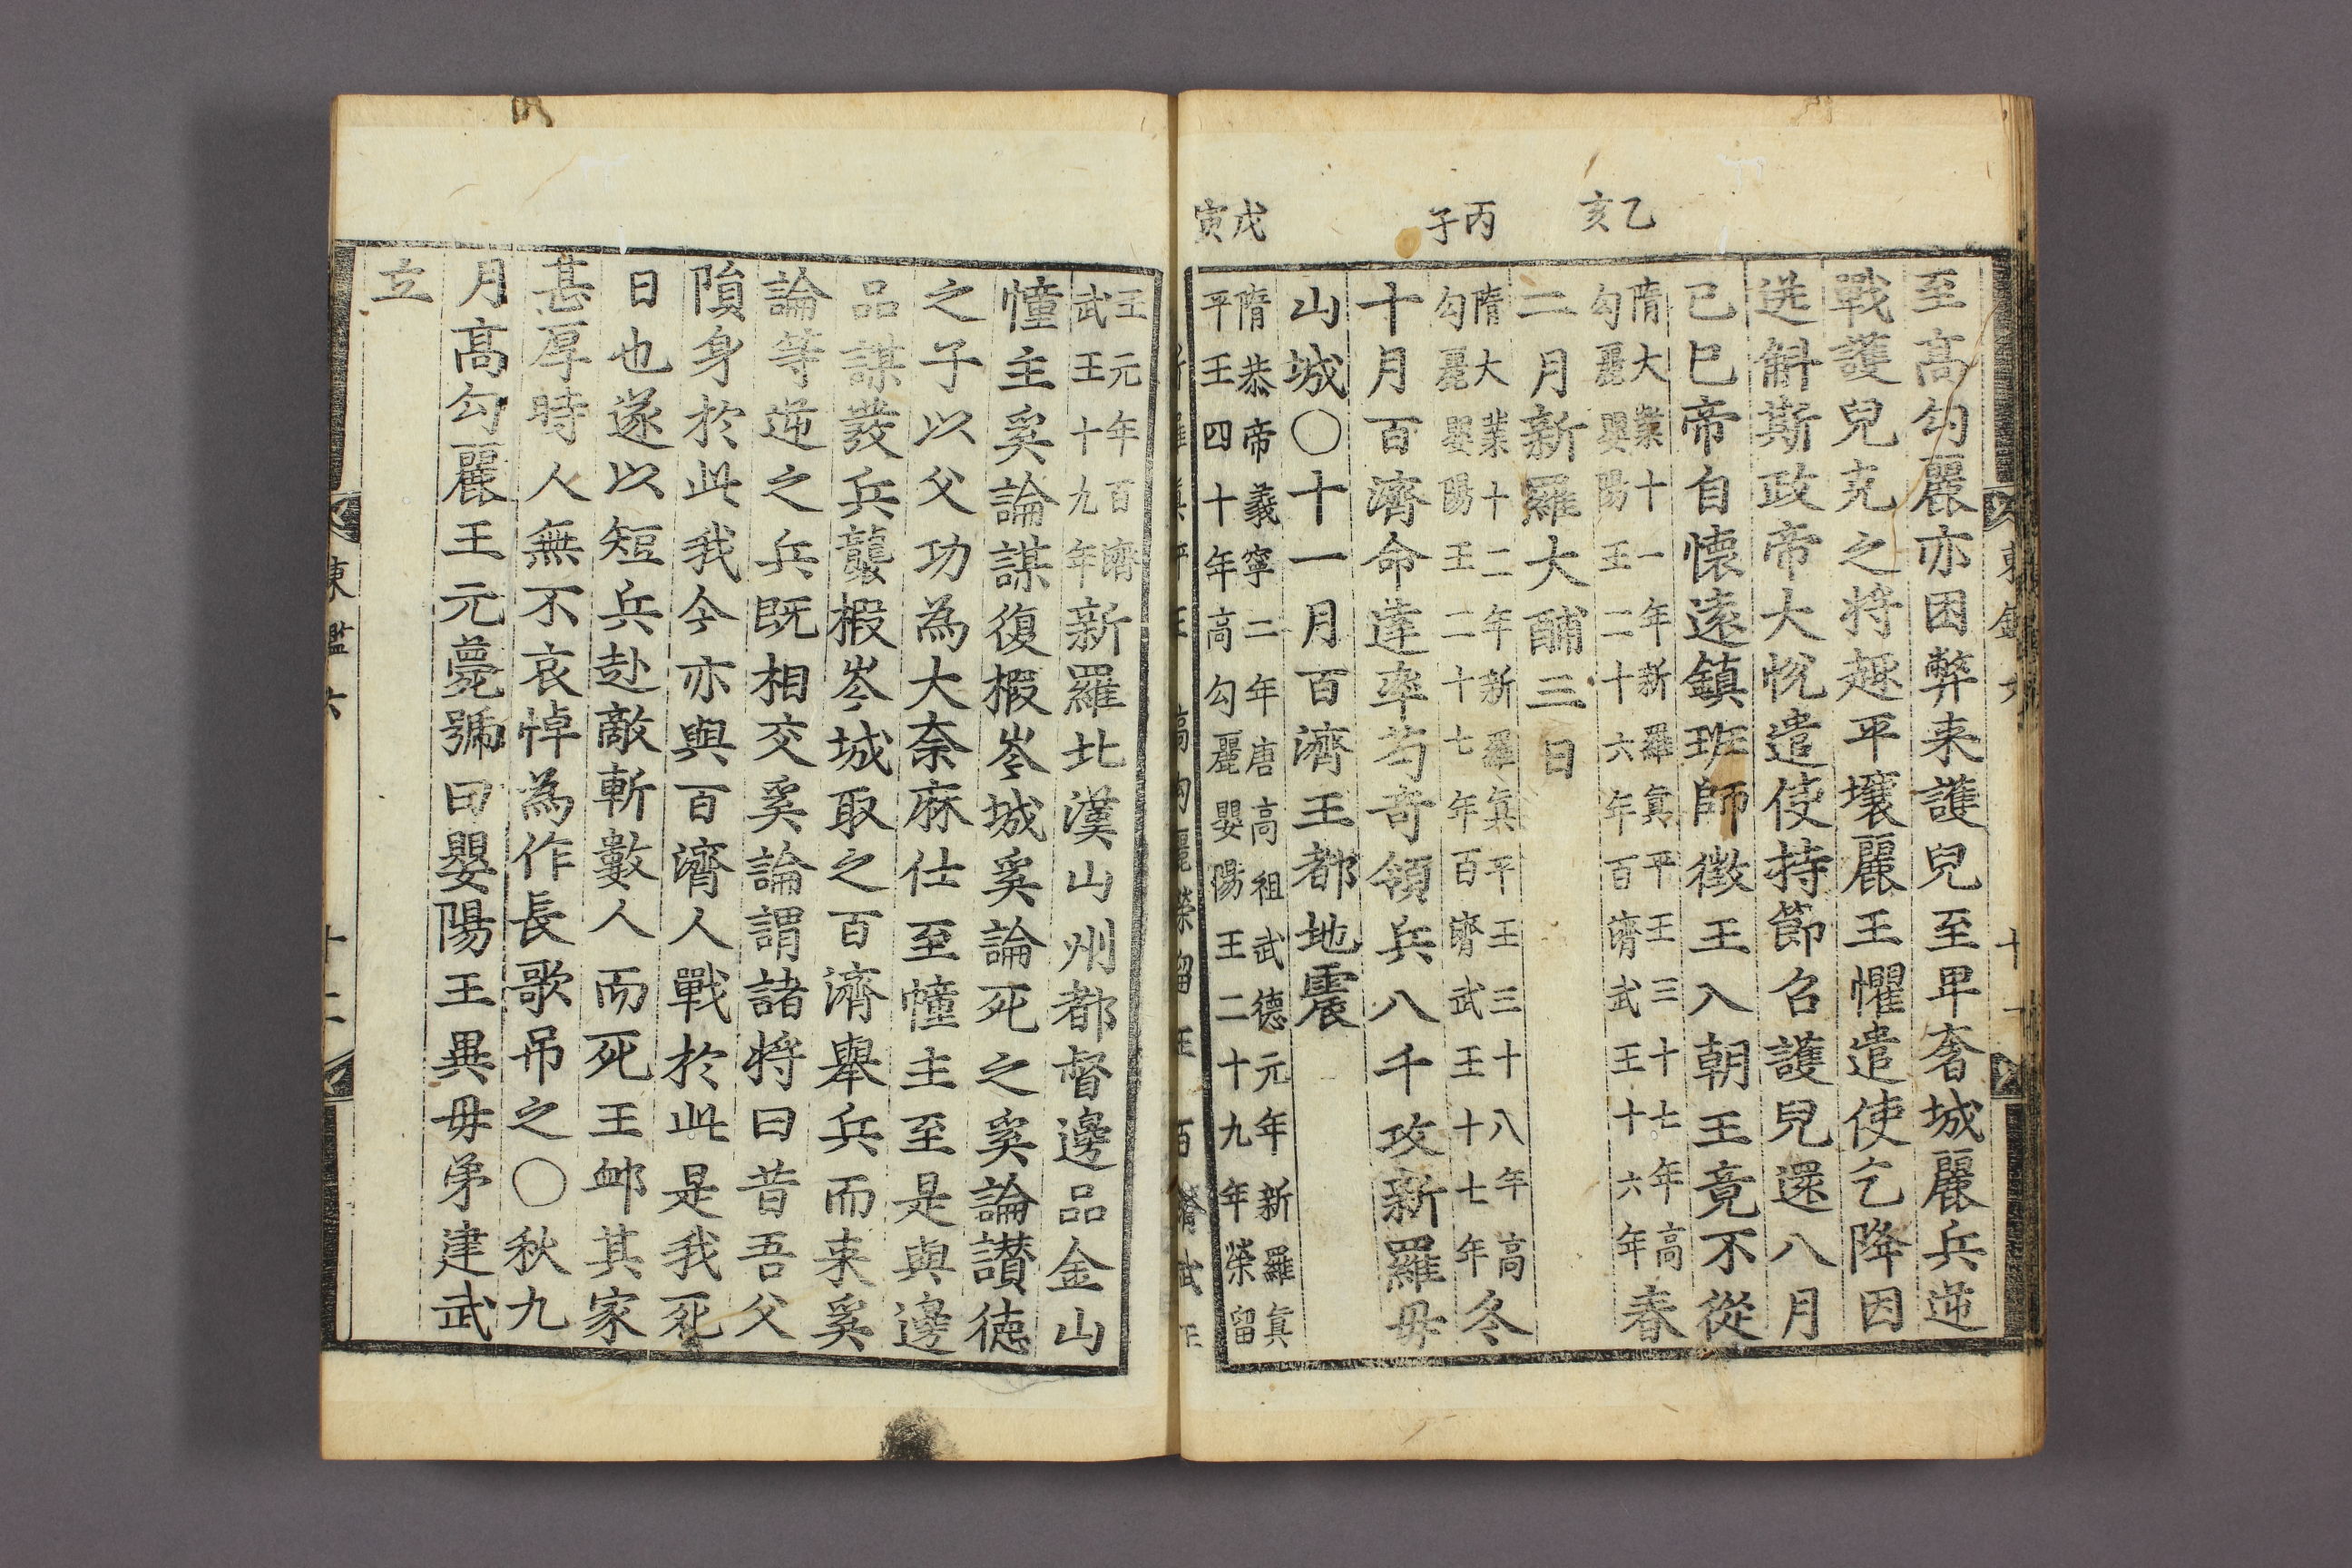 乙亥
丙子
戊寅
至高勾麗亦困弊来護兒至卑奢城麗兵逆
戰護兒克之将趣平壤麗王懼遣使乞降因
送斛斯政帝大悅遣使持節召護兒還八月
己巳帝自懷遠鎮班師徵王入朝王竟不從
隋大業十一年新羅眞平王三十七年高
勾麗嬰陽王二十六年百濟武王十六年
春
二月新羅大酺三日
隋大業十二年新羅眞平王三十八年高
勾麗嬰陽王二十七年百濟武王十七年
冬
十月百濟命達率苩奇領兵八千攻新羅毋
山城○十一月百濟王都地震
隋恭帝義寧二年唐高祖武德元年新羅眞
平王四十年高勾麗嬰陽王二十九年榮留
王元年百濟
武王十九年
新羅北漢山州都督邊品金山
幢主奚論謀復椵岑城奚論死之奚論讃德
之子以父功為大奈麻仕至幢主至是與邊
品謀發兵襲椵岑城取之百濟舉兵而来奚
論等逆之兵既相交奚論謂諸将曰昔吾父
隕身於此我今亦與百濟人戰於此是我死
日也遂以短兵赴敵斬數人而死王衈其家
甚厚時人無不哀悼為作長歌吊之○秋九
月高勾麗王元薨號曰嬰陽王異毋弟建武
立
東鑑六
十二